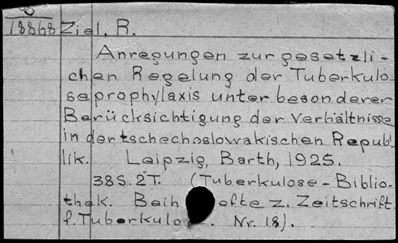 18868 Ziel, R.
Anregungen zur gesetzli-
chen Regelung der Tuberkulo
seprophylaxis unter besonderer
Berücksichtigung der Verhältnisse
in der tschechoslowakischen Republ
lik. Leipzig, Barth, 1925.
38 S. 2T. (Tuberkulose-Biblio-
thek. Beih efte z. Zeitschrift
f. Tuberkulo . Nr. 18).